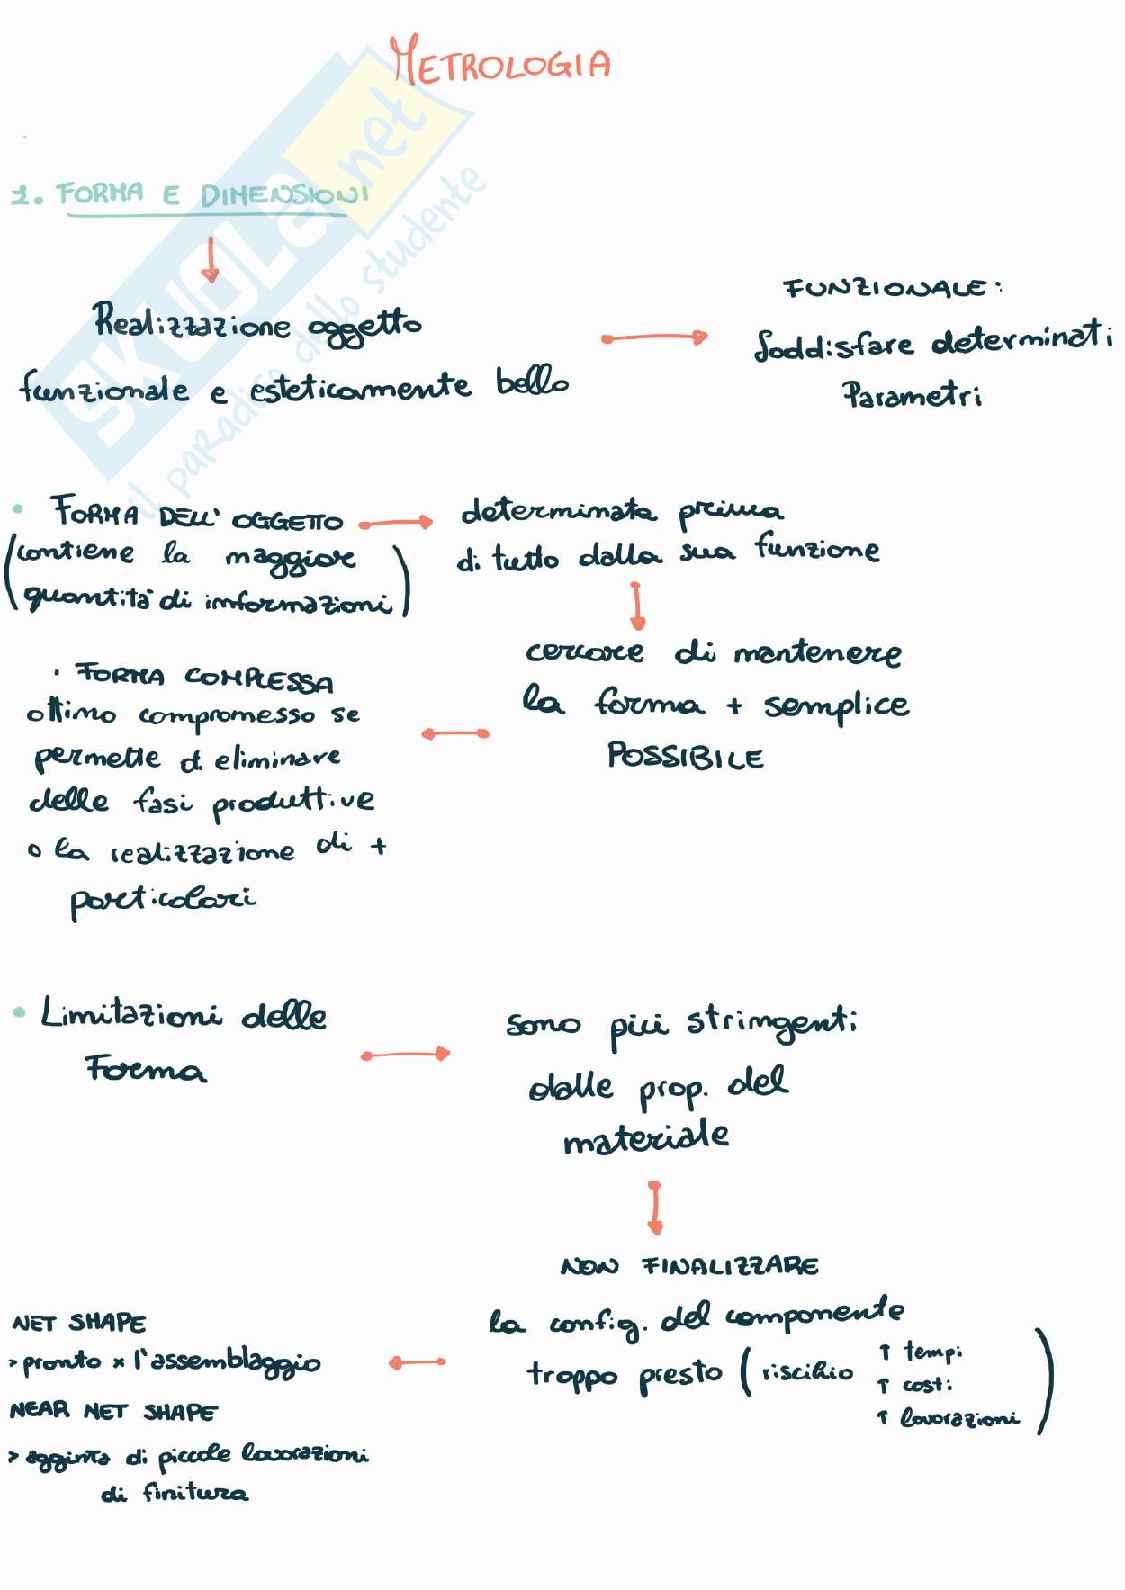 METROLOGIA
1. FORMA E DIMENSIONI
Realizzazione oggetto
funzionale e esteticamente bello
FUNZIONALE:
Soddisfare determinati
Parametri
• FORMA DELL' OGGETTO
(contiene la maggiore
quantità di informazioni)
determinata prima
di tutto dalla sua funzione
cercare di mantenere
la forma + semplice
POSSIBILE
• FORMA COMPLESSA
ottimo compromesso se
permette di eliminare
delle fasi produttive
o la realizzazione di +
particolari
• Limitazioni delle
Forma
sono più stringenti
dalle prop. del
materiale
NON FINALIZZARE
la config. del componente
troppo presto (rischio ↑ tempi
↑ costi
↑ lavorazioni)
NET SHAPE
> pronto x l'assemblaggio
NEAR NET SHAPE
> aggiunta di piccole lavorazioni
di finitura
SKUOLA.net
il paradiso dello studente